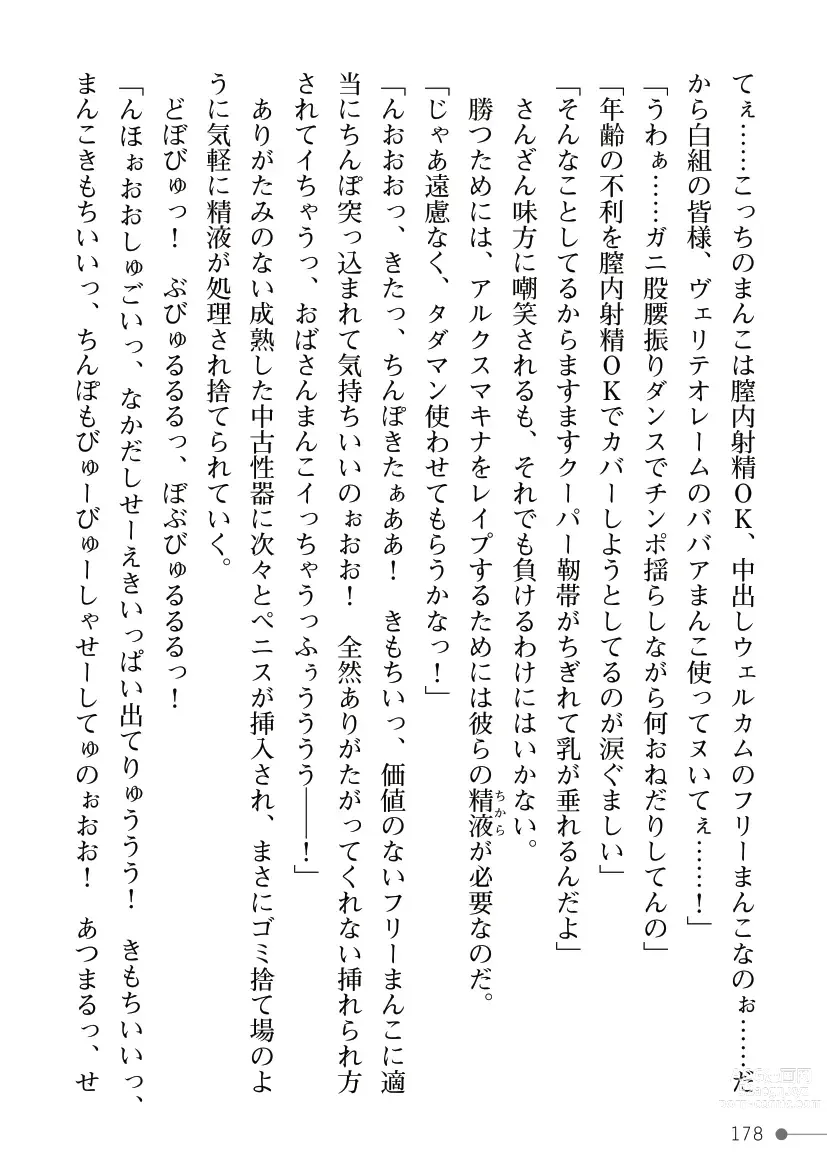 てぇ……こっちのまんこは膣内射精ＯＫ、中出しウェルカムのフリーまんこなのぉ……だ
から白組の皆様、ヴェリテオレームのババアまんこ使ってヌいてぇ……！」
「うわぁ……ガニ股腰振りダンスでチンポ揺らしながら何おねだりしてんの」
「年齢の不利を膣内射精ＯＫでカバーしようとしてるのが涙ぐましい」
「そんなことしてるからますますクーパー靭帯がちぎれて乳が垂れるんだよ」
さんざん味方に嘲笑されるも、それでも負けるわけにはいかない。
勝つためには、アルクスマキナをレイプするためには彼らの精液ちからが必要なのだ。
「じゃあ遠慮なく、タダマン使わせてもらうかなっ！」
「んおおおっ、きたっ、ちんぽきたぁああ！　きもちいっ、価値のないフリーまんこに適
当にちんぽ突っ込まれて気持ちいいのぉおお！　全然ありがたがってくれない挿れられ方
されてイちゃうっ、おばさんまんこイっちゃうっふぅうううう――！」
ありがたみのない成熟した中古性器に次々とペニスが挿入され、まさにゴミ捨て場のよ
うに気軽に精液が処理され捨てられていく。
どぼびゅっ！　ぶびゅるるるっ、ぼぶびゅるるるっ！
「んほぉおおしゅごいっ、なかだしせーえきいっぱい出てりゅううう！　きもちいいっ、
まんこきもちいいっ、ちんぽもびゅーびゅーしゃせーしてゅのぉおお！　あつまるっ、せ
178